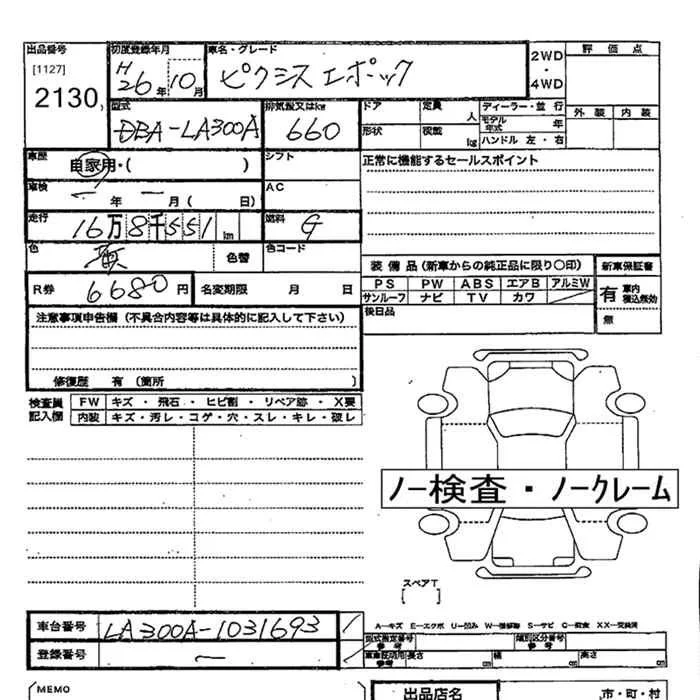 出品番号 初度登録年月 車名・グレード 2WD・4WD 評価点
[1127] H26年10月 ピクシス エポック
2130
型式 排気量又はkw ドア 定員 人 ディーラー・並行 外装 内装
DBA-LA300A 660 形状 積載 kg モデル年式 年
ハンドル 左・右
車歴 自家用・( ) シフト 正常に機能するセールスポイント
車検 ー年 ー月( 日) AC
走行 16万8千551km 燃料 G
色 色替 色コード
装備品(新車からの純正品に限り○印) 新車保証書
R券 6680円 名変期限 月 日 PS PW ABS エアB アルミW 有 車内積込無効
サンルーフ ナビ TV カワ
注意事項申告欄(不具合内容等は具体的に記入して下さい) 後日品 無
修復歴 有(箇所 )
検査員記入欄 FW キズ ・ 飛石 ・ ヒビ割 ・ リペア跡 ・ X要
内装 キズ・汚レ・コゲ・穴・スレ・キレ・破レ
ノー検査・ノークレーム
スペアT
[ ]
車台番号 LA300A-1031693 A-キズ E-エクボ U-凹み W-補修跡 S-サビ C-腐食 XX-交換済
型式指定番号 参考 類別区分番号 参考
登録番号 ー 長さ cm 幅 cm 高さ cm
MEMO 出品店名 市・町・村